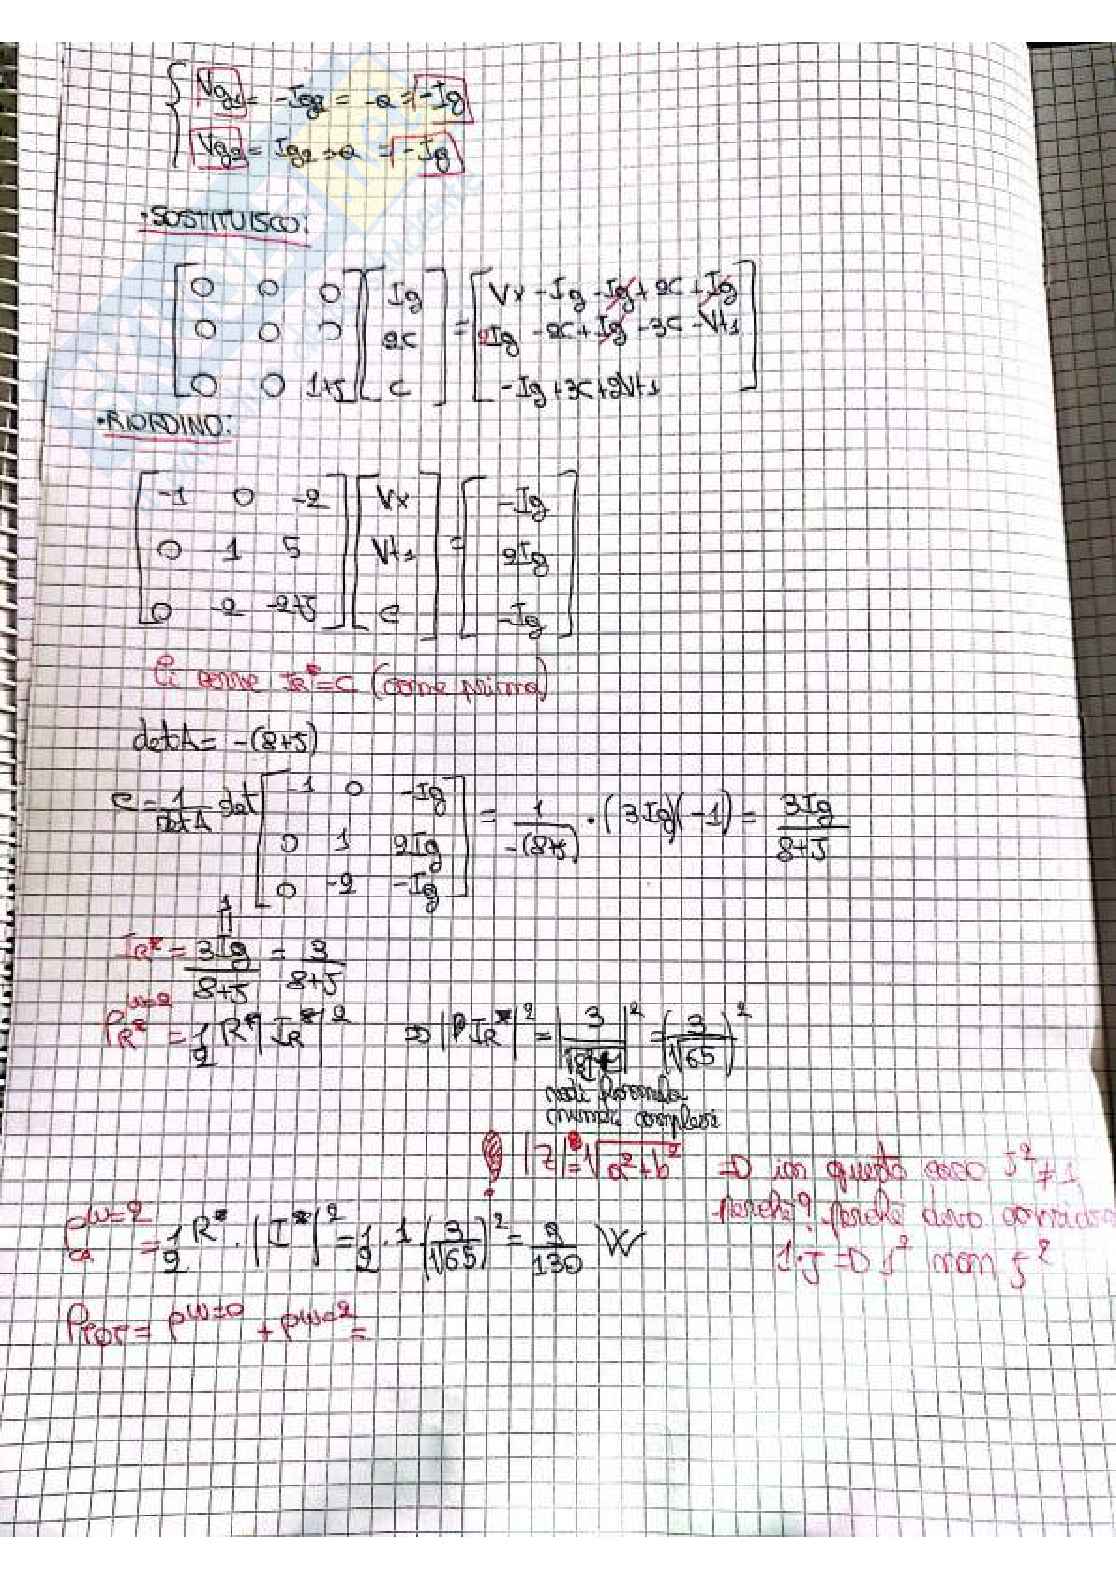 Vg1 = -Ig2 = -a = -Ig
Vg2 = Ig2 = a = -Ig
• SOSTITUISCO:
[0 0 0] [Ig] = [Vx - Ig - Ig + 2c + Ig]
[0 0 0] [2c] [2Ig - 2c + Ig - 3c - Vt1]
[0 0 1+J] [c] [-Ig + 3c + 2Vt1]
• RIORDINO:
[-1 0 -2] [Vx] = [-Ig]
[0 1 5] [Vt1] [2Ig]
[0 -2 -2+J] [c] [-Ig]
Ci serve IR* = c (come prima)
det A = -(8+J)
c = 1/det A det [-1 0 -Ig; 0 1 2Ig; 0 -2 -Ig] = 1/-(8+J) · (3Ig)(-1) = 3Ig/8+J
1
IR* = 3Ig/8+J = 3/8+J
PR* w=2 = 1/2 R* |IR*|² => |IR*|² = |3/ |² = (3/√65)²
vedi formula
numeri complessi
! |Z| = √a²+b² => in questo caso J² ≠ 1
perché? perché devo
1·J => 1² non J²
P w=2 = 1/2 R* · |I*|² = 1/2 · 1 · (3/√65)² = 9/130 W
PTOT = P w=0 + P w=2 =